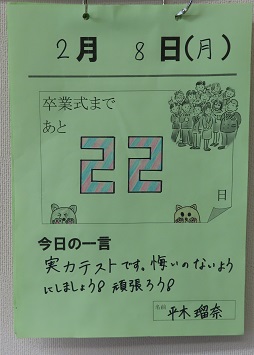 2月 8日(月)
卒業式まで
あと
22
日
今日の一言
実力テストです。悔いのないよう
にしましょう! 頑張ろう!
名前 平木 瑠奈